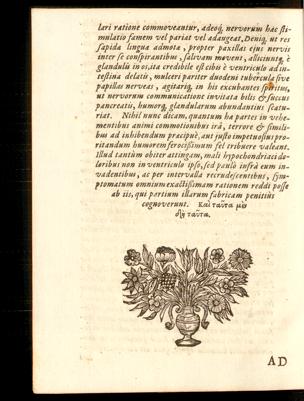 lari ratione commoveantur, adeoq; nervorum hac sti-
mulatio famem vel pariat vel adaugeat, Deniq; ut res
sapida lingua admota, propter paxillas ejus nervis
inter se conspirantibus, salivam movent, allicituntq; è
glandulis in os, ita credibile est cibis è ventriculo ad in-
testina delatis, mulceri pariter duodeni tubercula sive
papillas nerveas, agitatiq; in his excubantes spiritus,
ut nervorum communicatione invitata bilis & succus
pancreatis, humorq; glandularum abundantius scatu-
riat. Nihil nunc dicam, quantum ha partes in vehe-
mentibus animi commotionibus irâ, terrore & simili-
bus ad iubibendum præcipuè, aut justo impetuosius pro-
ritandum humorem ferocissimum fel tribuere valeant.
Illud tantùm obiter attingam, mali hypochondriaci do-
loribus non in ventriculo ipso, sed paulò infrà eum in-
vadentibus, ac per intervalla recrudescentibus, sym-
ptomatum omnium exactissimam rationem reddi posse
ab iis, qui partium illarum fabricam penitius
cognoverunt. Καὶ ταῦτα μὲν
δὴ ταῦτα.
AD